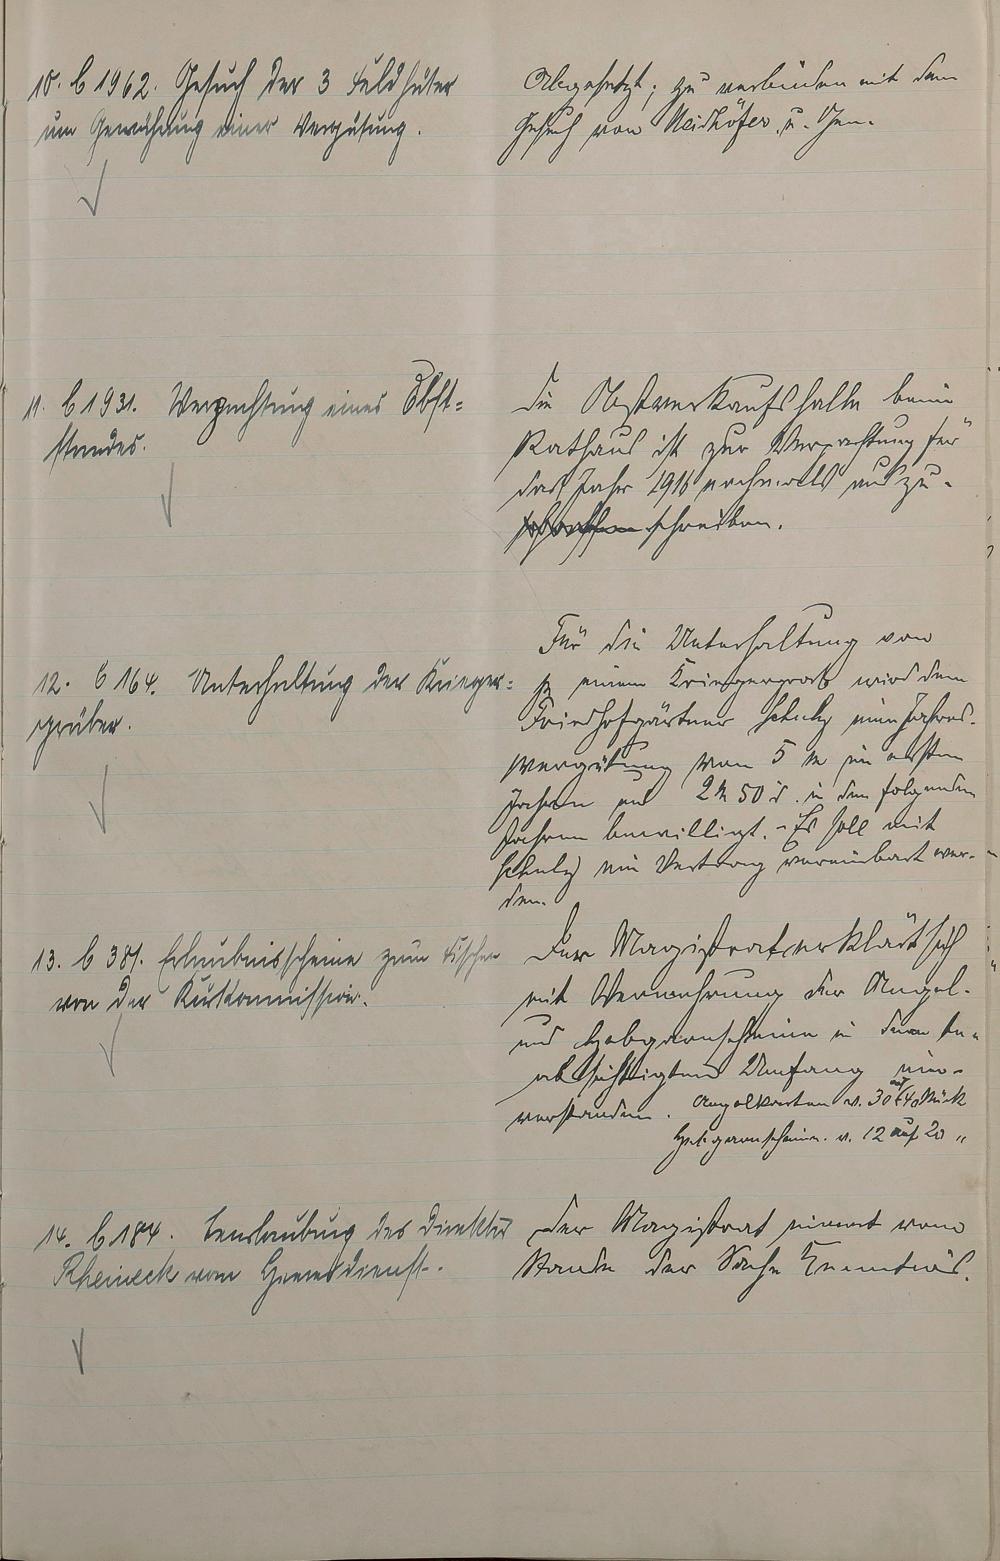 10. b 1962. Gesuch der 3 Feldhüter
um Gewährung einer Vergütung.
Abgesetzt; zu verbinden mit dem
Gesuch von Neidhöfer u. Gen.
11. b 1931. Verpachtung eines Obst-
standes.
Die Obstverkaufshalle beim
Rathaus ist zur Verpachtung für
das Jahr 1916 nochmals auszu-
schreiben.
12. b 164. Unterhaltung der Krieger-
gräber.
Für die Unterhaltung von
je einem Kriegergrab wird dem
Friedhofgärtner Schulz eine Jahres-
vergütung von 5 M im ersten
Jahre und 2 M 50 d. in den folgenden
Jahren bewilligt. - Es soll mit
Schulz ein Vertrag vereinbart wer-
den.
13. b 381. Erlaubnisscheine zum Fischen
von der Kurkommission.
Der Magistrat erklärt sich
mit Vermehrung der Angel-
und Hebgarnscheine in dem be-
absichtigten Umfang ein-
verstanden. Angelkarten v. 30 auf 40 Stück
Hebgarnscheine v. 12 auf 20 "
14. b 184. Beurlaubung des Direktor
Rheineck vom Heeresdienst.
Der Magistrat nimmt vom
Stande der Sache Kenntnis.